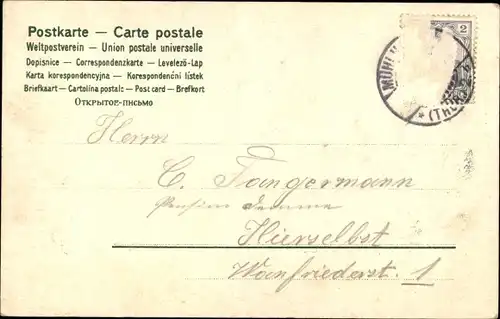 Postkarte — Carte postale
Weltpostverein — Union postale universelle
Dopisnice — Correspondenzkarte — Levelező-Lap
Karta korespondencyjna — Korespondenční lístek
Briefkaart — Cartolina postale — Post card — Brefkort
Открытое-письмо
2
MÜHLH
* (TH
Herrn
C. Fangermann
Pension
Hierselbst
Wanfriederst. 1